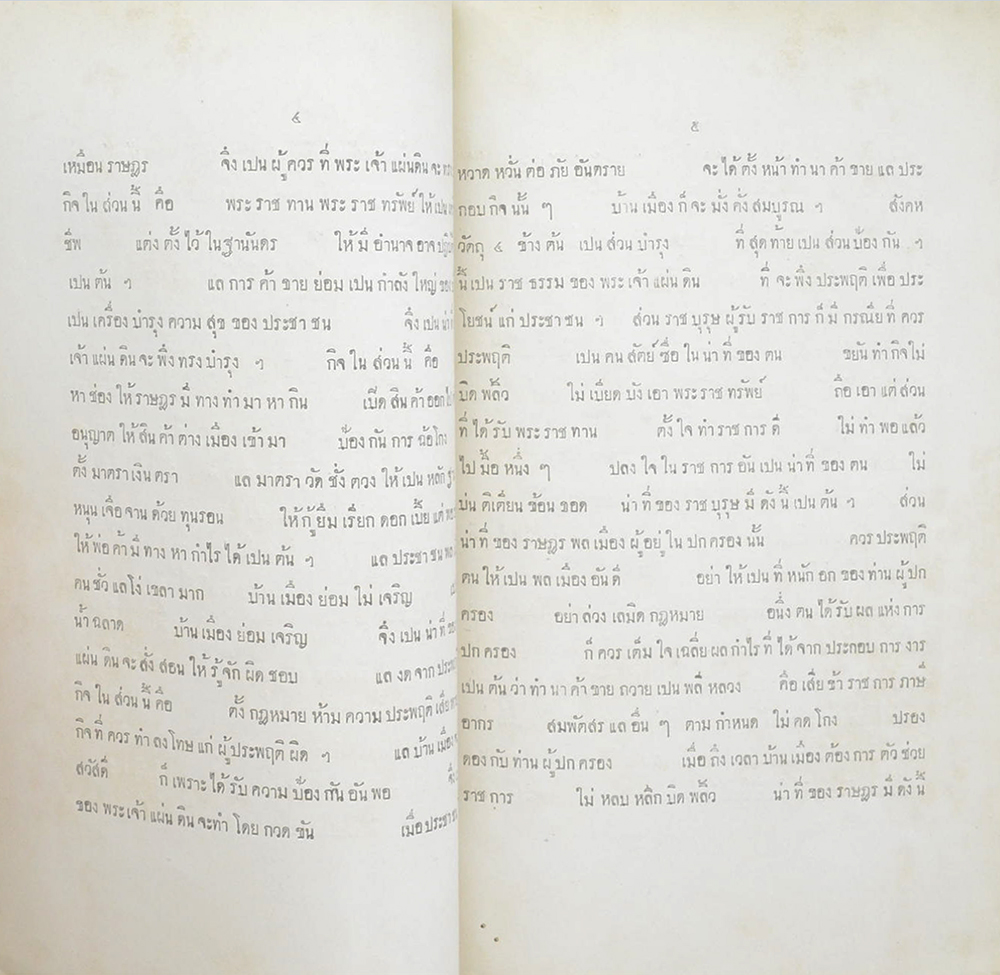 ๔
เหมือน ราษฎร จึ่ง เปน ผู้ ควร ที่ พระ เจ้า แผ่นดิน จะ
กิจ ใน ส่วน นี้ คือ พระ ราช ทาน พระ ราช ทรัพย์ ให้ เปน
ชีพ แต่ง ตั้ง ไว้ ใน ฐานันดร ให้ มี อำนาจ อาจ
เปน ต้น ๆ แล การ ค้า ขาย ย่อม เปน กำลัง ใหญ่
เปน เครื่อง บำรุง ความ สุข ของ ประชา ชน จึ่ง เปน
เจ้า แผ่น ดิน จะ พึ่ง ทรง บำรุง ๆ กิจ ใน ส่วน นี้ คือ
หา ช่อง ให้ ราษฎร มี ทาง ทำ มา หา กิน เปิด สิน ค้า ออก
อนุญาต ให้ สิน ค้า ต่าง เมือง เข้า มา ป้อง กัน การ ฉ้อ โกง
ตั้ง มาตรา เงิน ตรา แล มาตรา วัด ชั่ง ตวง ให้ เปน หลัก
หนุน เจือ จาน ด้วย ทุนรอน ให้ กู้ ยืม เรียก ดอก เบี้ย แต่
ให้ พ่อ ค้า มี ทาง หา กำไร ได้ เปน ต้น ๆ แล ประชา ชน
คน ชั่ว แล โง่ เขลา มาก บ้าน เมือง ย่อม ไม่ เจริญ
น้ำ ฉลาด บ้าน เมือง ย่อม เจริญ จึ่ง เปน น่า ที่
แผ่น ดิน จะ สั่ง สอน ให้ รู้ จัก ผิด ชอบ แล งด จาก
กิจ ใน ส่วน นี้ คือ ตั้ง กฎหมาย ห้าม ความ ประพฤติ
กิจ ที่ ควร ทำ ลง โทษ แก่ ผู้ ประพฤติ ผิด ๆ แล บ้าน เมือง
สวัสดี ก็ เพราะ ได้ รับ ความ ป้อง กัน อัน พอ
ของ พระ เจ้า แผ่น ดิน จะ ทำ โดย กวด ขัน เมื่อ ประชา
๕
หวาด หวั่น ต่อ ภัย อันตราย จะ ได้ ตั้ง หน้า ทำ นา ค้า ขาย แล ประ
กอบ กิจ นั้น ๆ บ้าน เมือง ก็ จะ มั่ง คั่ง สมบูรณ ๆ สังคห
วัตถุ ๔ ข้าง ต้น เปน ส่วน บำรุง ที่ สุด ท้าย เปน ส่วน ป้อง กัน ๆ
นี้ เปน ราช ธรรม ของ พระ เจ้า แผ่น ดิน ที่ จะ พึ่ง ประพฤติ เพื่อ ประ
โยชน์ แก่ ประชา ชน ๆ ส่วน ราช บุรุษ ผู้ รับ ราช การ ก็ มี กรณีย ที่ ควร
ประพฤติ เปน คน สัตย์ ซื่อ ใน น่า ที่ ของ ตน ขยัน ทำ กิจ ไม่
บิด พลิ้ว ไม่ เบียด บัง เอา พระ ราช ทรัพย์ ถือ เอา แต่ ส่วน
ที่ ได้ รับ พระ ราช ทาน ตั้ง ใจ ทำ ราช การ ดี ไม่ ทำ พอ แล้ว
ไป มื้อ หนึ่ง ๆ ปลง ใจ ใน ราช การ อัน เปน น่า ที่ ของ ตน ไม่
บ่น ติเตียน ข้อน ขอด น่า ที่ ของ ราช บุรุษ มี ดัง นี้ เปน ต้น ๆ ส่วน
น่า ที่ ของ ราษฎร พล เมือง ผู้ อยู่ ใน ปก ครอง นั้น ควร ประพฤติ
ตน ให้ เปน พล เมือง อัน ดี อย่า ให้ เปน ที่ หนัก อก ของ ท่าน ผู้ ปก
ครอง อย่า ล่วง เลมิด กฎหมาย อนึ่ง ตน ได้ รับ ผล แห่ง การ
ปก ครอง ก็ ควร เต็ม ใจ เฉลี่ย ผล กำไร ที่ ได้ จาก ประกอบ การ งาร
เปน ต้น ว่า ทำ นา ค้า ขาย ถวาย เปน พลี หลวง คือ เสีย ข้า ราช การ ภาษี
อากร สมพัตสร แล อื่น ๆ ตาม กำหนด ไม่ คด โกง ปรอง
ดอง กับ ท่าน ผู้ ปก ครอง เมื่อ ถึง เวลา บ้าน เมือง ต้อง การ ตัว ช่วย
ราช การ ไม่ หลบ หลีก บิด พลิ้ว น่า ที่ ของ ราษฎร มี ดัง นี้